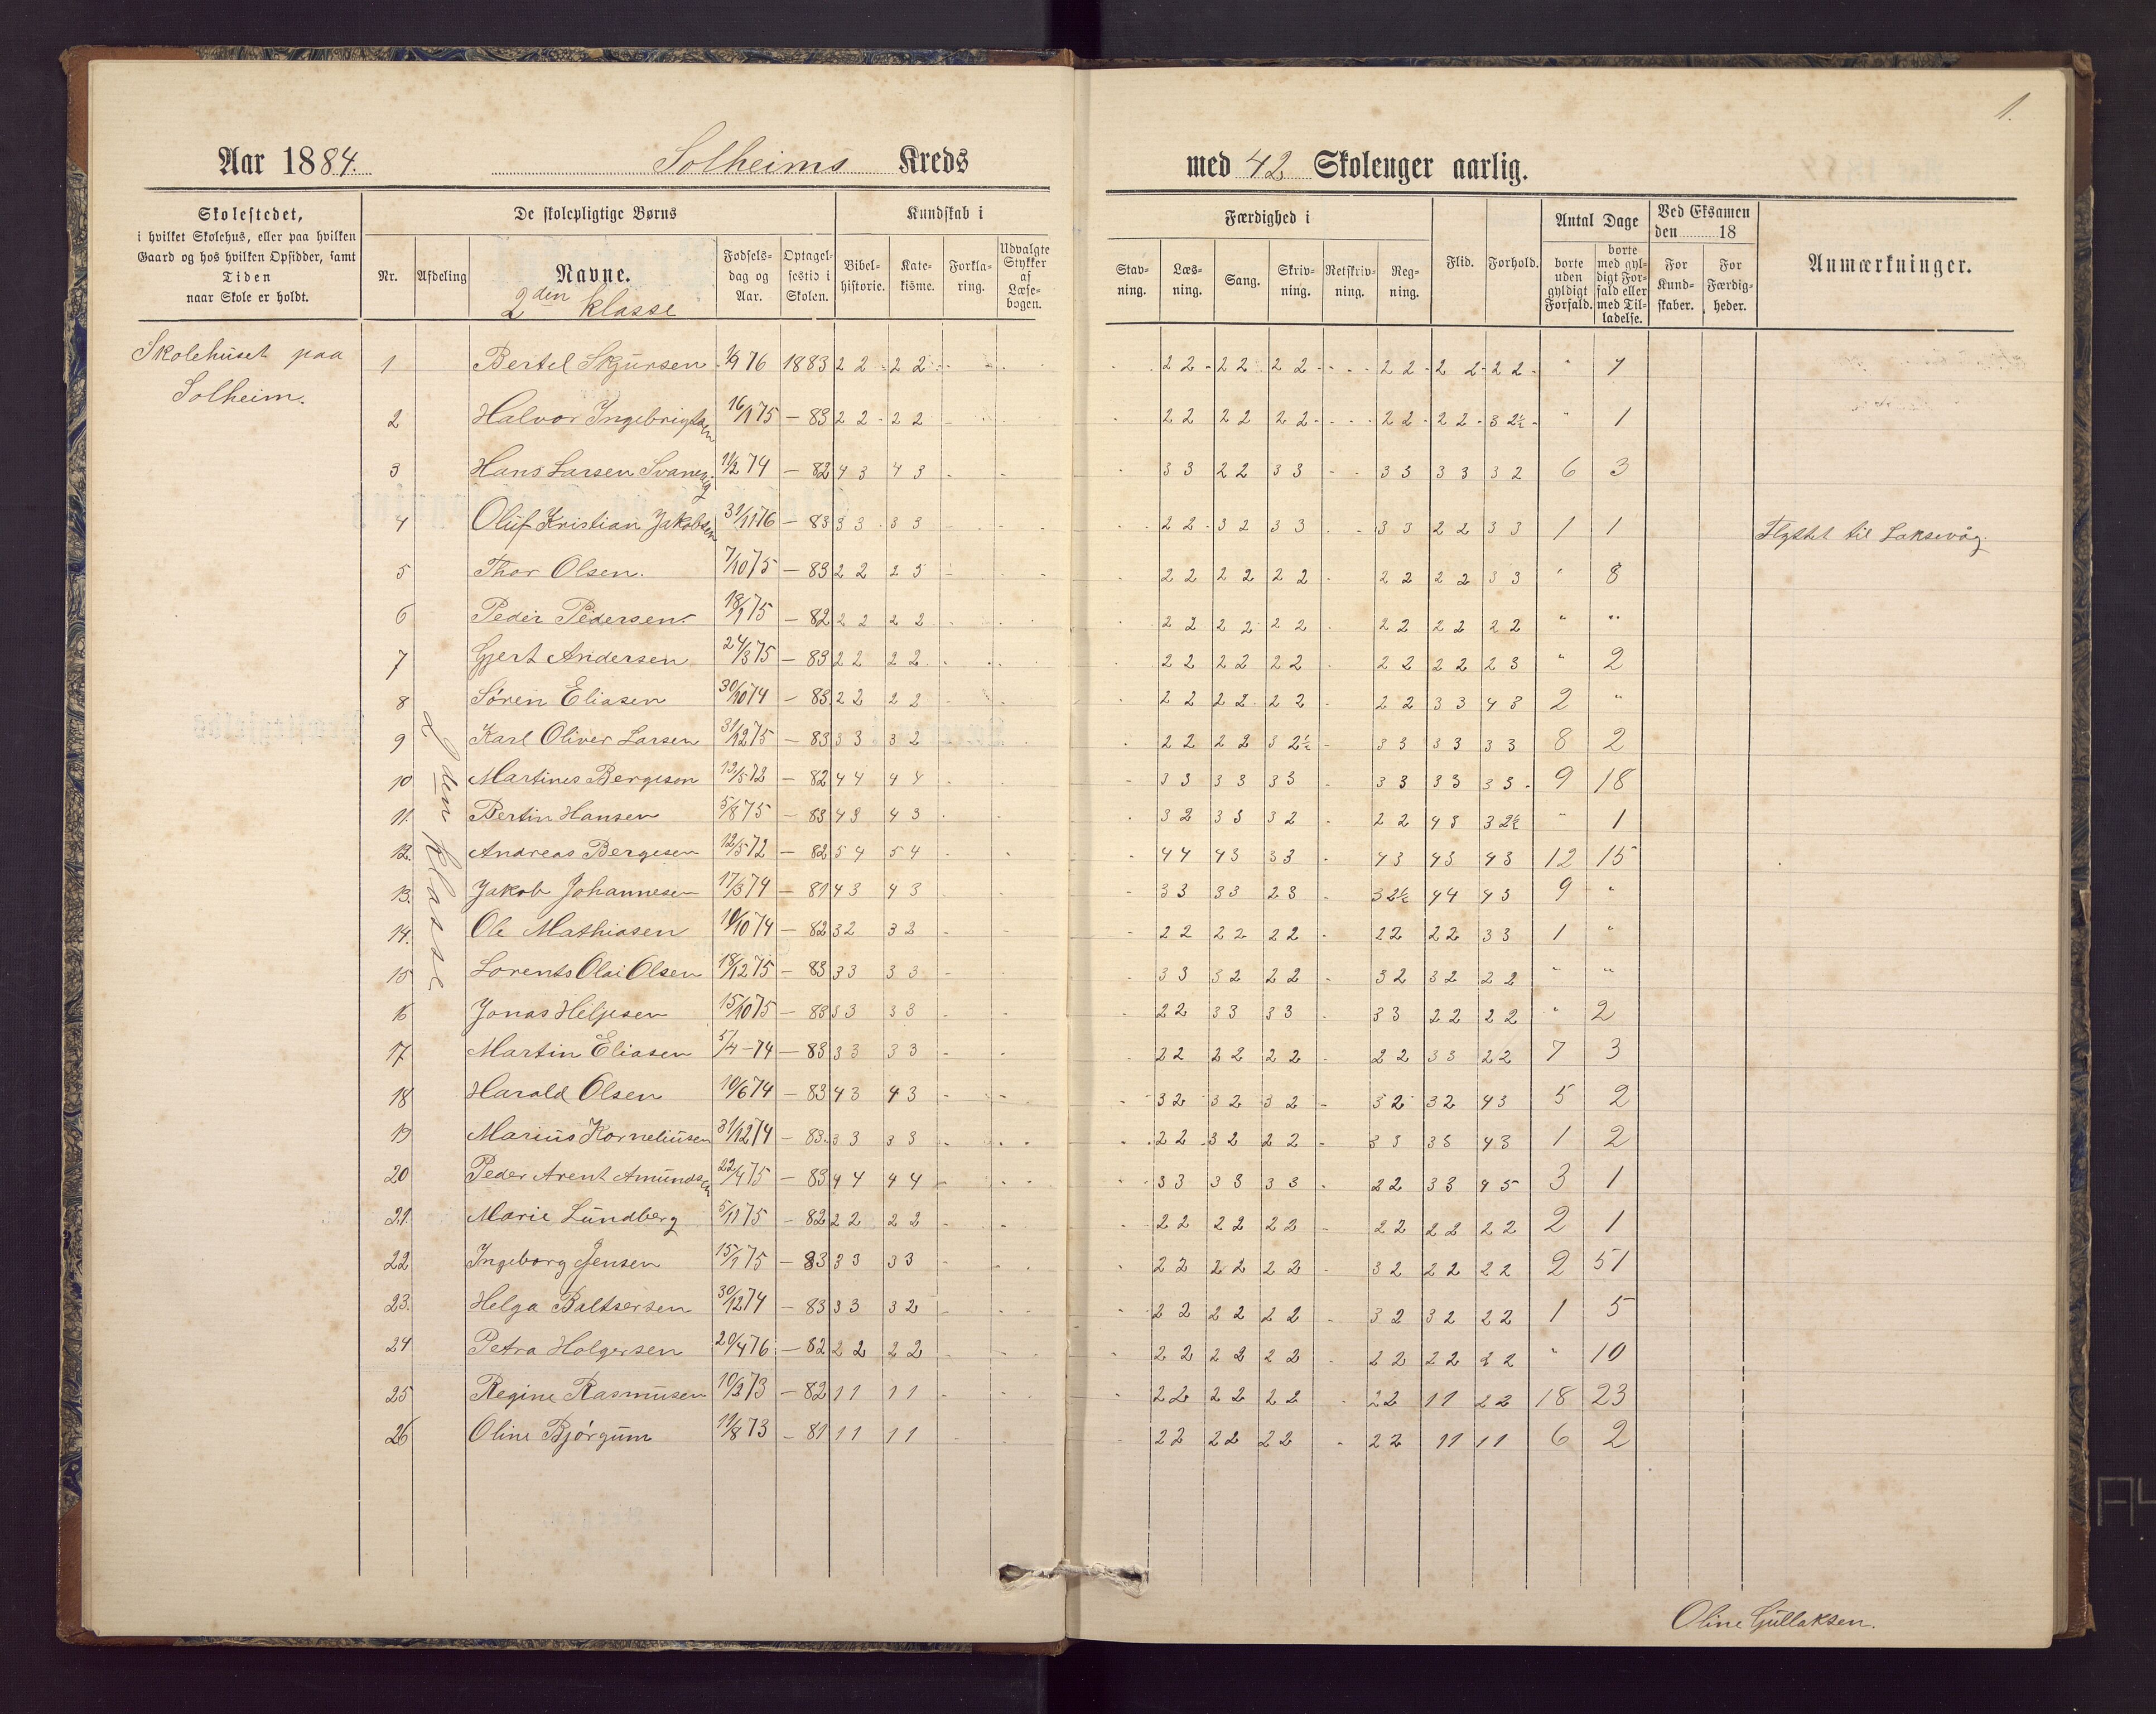 1.
Aar 1884. Solheims Kreds med 42 Skoleuger aarlig.
Skolestedet,
i hvilket Skolehus, eller paa hvilken
Gaard og hos hvilken Opsidder, samt
Tiden
naar Skole er holdt.
De skolepligtige Børns
Nr. Afdeling Navne. Fødsels-dag og Aar. Optagel-sestid i Skolen.
2den Klasse
Kundskab i
Bibel-historie. Kate-kisme. Forkla-ring. Udvalgte Stykker af Læse-bogen.
Færdighed i
Stav-ning. Læs-ning. Sang. Skriv-ning. Retskriv-ning. Reg-ning.
Flid. Forhold.
Antal Dage
borte uden gyldigt Forfald. borte med gyl-digt For-fald eller med Til-ladelse.
Ved Eksamen
den 18
For Kund-skaber. For Færdig-heder.
Anmærkninger.
Skolehuset paa
Solheim.
2den klasse
1 Bertel Skjursen 76 1883 2 2 2 2 - 2 2 2 2 2 2 - 2 2 2 2 2 2 "
2 Halvor Ingebrigtsen 75 - 83 2 2 2 2 - 2 2 2 2 2 2 - 2 2 2 2 3 2½ " 1
3 Hans Larsen Svanevig 74 - 82 4 3 4 3 - - 3 3 2 2 3 3 - 3 3 3 3 3 2 6 3
4 Oluf Kristian Jakobsen 31/1176 - 83 3 3 3 3 - 2 2 3 2 3 3 - 3 3 2 2 3 3 1 1 Flyttet til Laksevåg.
5 Thor Olsen. 7/1075 - 83 2 2 2 3 - 2 2 2 2 2 2 - 2 2 2 2 3 3 " 8
6 Peder Pedersen. 75 - 82 2 2 2 2 - 2 2 2 2 2 2 - 2 2 2 2 2 2 " "
7 Gjert Andersen 24/375 - 83 2 2 2 2 - 2 2 2 2 2 2 - 2 2 2 2 2 3 " 2
8 Søren Eliasen 30/1074 - 83 2 2 2 2 - 2 2 2 2 2 2 - 2 2 3 3 4 3 2 "
9 Karl Oliver Larsen 31/1275 - 83 3 3 3 2 - 2 2 2 2 3 2½ - 3 3 3 3 3 3 8 2
10 Martines Bergeson 572 - 82 4 4 4 4 - 3 3 3 3 3 3 - 3 3 3 3 3 3 9 18
11. Bertin Hansen 5/875 - 83 4 3 4 3 - 3 2 3 3 3 2 - 2 2 4 3 3 2½ " 1
12. Andreas Bergesen 12/572 - 82 5 4 5 4 - 4 4 4 3 3 3 - 4 3 4 3 4 3 12 15
13. Jakob Johannesen 17/374 - 81 4 3 4 3 - 3 3 3 3 2 3 - 3 2½ 4 4 4 3 9 "
14. Ole Mathiasen 10/1074 - 82 3 2 3 2 - 2 2 2 2 2 2 - 2 2 2 2 3 3 1 "
15 Lorents Olai Olsen 18/1275 - 83 3 3 3 3 - 3 3 3 2 2 2 - 3 2 3 2 2 2 " "
16 Jonas Heljesen 15/1075 - 83 3 3 3 3 - 2 2 3 3 3 3 - 3 3 2 2 2 2 " 2
17 Martin Eliasen 5/4-74 - 83 3 3 3 3 - 2 2 2 2 2 2 - 2 2 3 3 2 2 7 3
18 Harald Olsen 10/674 - 83 4 3 4 3 - 3 2 3 2 3 2 - 3 2 3 2 4 3 5 2
19 Marius Korneliusen 31/1274 - 83. 3 3 3 3 - 2 2 3 2 2 2 - 3 3 3 3 4 3 1 2
20 Peder Arent Amundsen 22/475 - 83 4 4 4 4 - 3 3 3 3 3 3 - 2 2 3 3 4 5 3 1
21. Marie Lundberg 5/1175 - 82 2 2 2 2 - 2 2 2 2 2 2 - 2 2 2 2 2 2 2 1
22 Ingeborg Jensen 15/175 - 83 3 3 3 3 - 2 2 2 2 2 2 - 3 2 2 2 2 2 2 51
23. Helga Baltsersen 30/1274 - 83 3 3 3 2 - 2 2 2 2 2 2 - 3 2 3 2 2 2 1 5
24 Petra Holgersen 20/476 - 82 2 2 2 2 - 2 2 2 2 2 2 - 2 2 2 2 2 2 " 10
25 Regine Rasmusen 73 - 82 1 1 1 1 - 2 2 2 2 2 2 - 2 2 1 1 2 2 18 23
26 Oline Bjørgum 11/873 - 81 1 1 1 1 - 2 2 2 2 2 2 - 2 2 1 1 1 1 6 2
Oline Gullaksen.